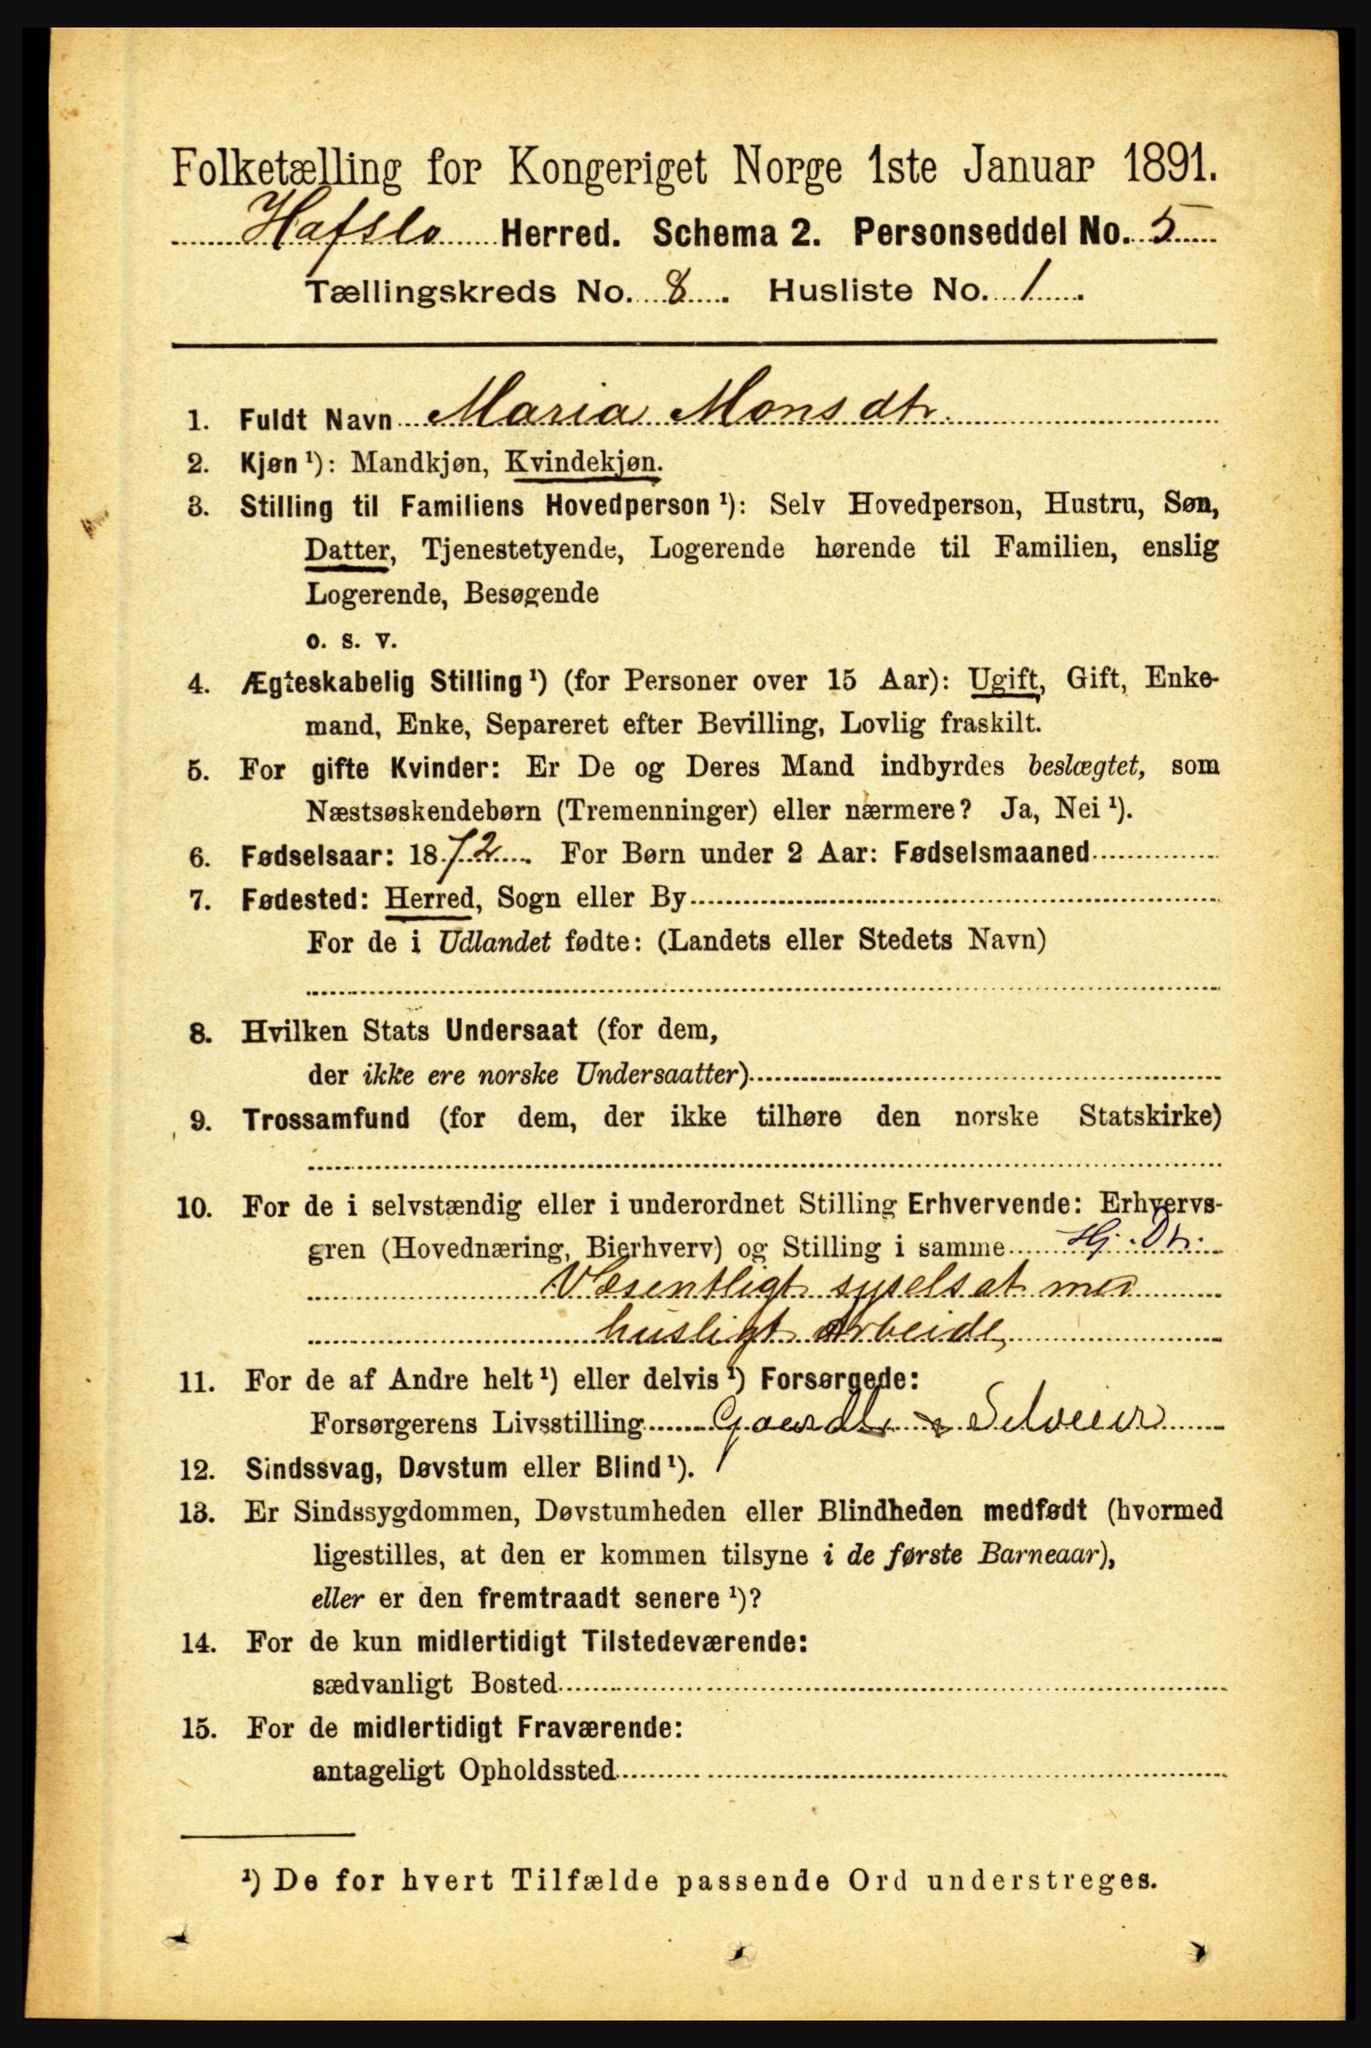 Folketælling for Kongeriget Norge 1ste Januar 1891.
Hafslo Herred. Schema 2. Personseddel No. 5
Tællingskreds No. 8. Husliste No. 1.
1. Fuldt Navn Maria Monsdtr.
2. Kjøn ¹): Mandkjøn, Kvindekjøn.
3. Stilling til Familiens Hovedperson ¹): Selv Hovedperson, Hustru, Søn,
Datter, Tjenestetyende, Logerende hørende til Familien, enslig
Logerende, Besøgende
o. s. v.
4. Ægteskabelig Stilling ¹) (for Personer over 15 Aar): Ugift, Gift, Enke-
mand, Enke, Separeret efter Bevilling, Lovlig fraskilt.
5. For gifte Kvinder: Er De og Deres Mand indbyrdes beslægtet, som
Næstsøskendebørn (Tremenninger) eller nærmere? Ja, Nei ¹).
6. Fødselsaar: 1872. For Børn under 2 Aar: Fødselsmaaned
7. Fødested: Herred, Sogn eller By
For de i Udlandet fødte: (Landets eller Stedets Navn)
8. Hvilken Stats Undersaat (for dem,
der ikke ere norske Undersaatter)
9. Trossamfund (for dem, der ikke tilhøre den norske Statskirke)
10. For de i selvstændig eller i underordnet Stilling Erhvervende: Erhvervs-
gren (Hovednæring, Bierhverv) og Stilling i samme Hj. Dtr.
Væsentligt syselsat med
husligt Arbeide
11. For de af Andre helt ¹) eller delvis ¹) Forsørgede:
Forsørgerens Livsstilling Gaardbr & Selveier
12. Sindssvag, Døvstum eller Blind ¹).
13. Er Sindssygdommen, Døvstumheden eller Blindheden medfødt (hvormed
ligestilles, at den er kommen tilsyne i de første Barneaar),
eller er den fremtraadt senere ¹)?
14. For de kun midlertidigt Tilstedeværende:
sædvanligt Bosted
15. For de midlertidigt Fraværende:
antageligt Opholdssted
¹) De for hvert Tilfælde passende Ord understreges.